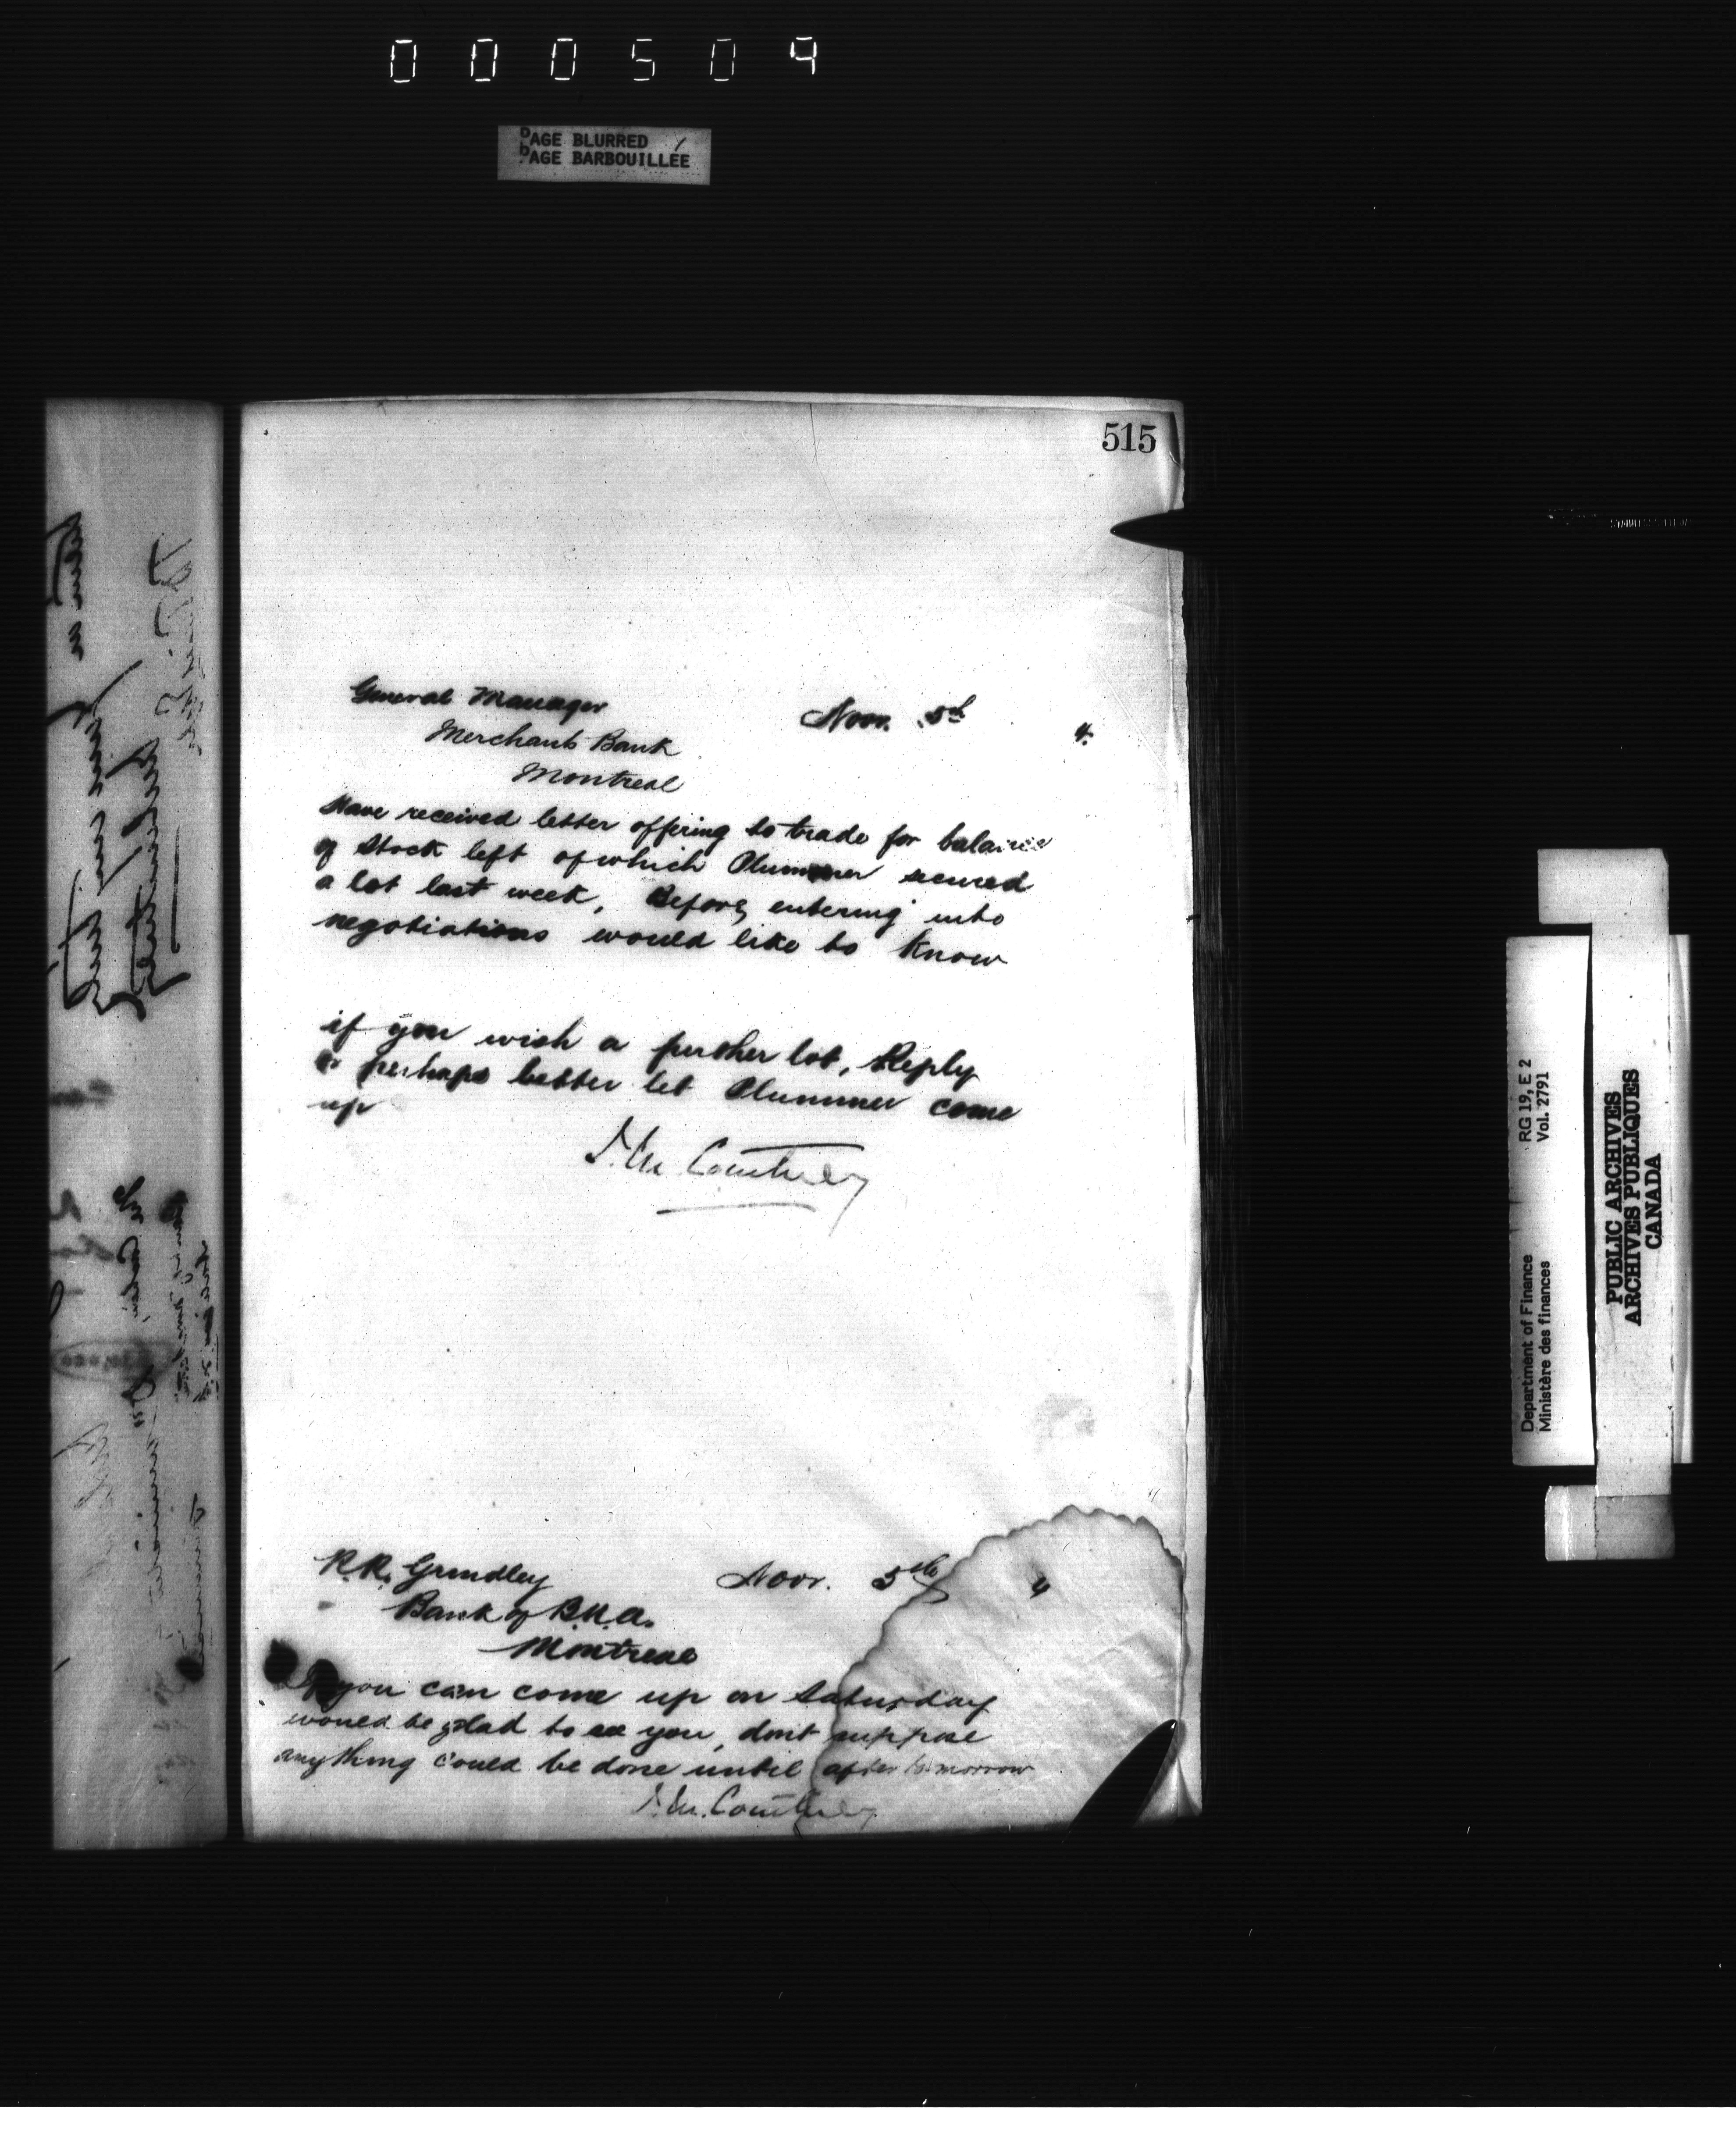 000504
PAGE BLURRED
PAGE BARBOUILLÉE
515
General Manager
Nov. 5th 4.
Merchants Bank
Montreal
Have received letter offering to trade for balance
of stock left of which Plummer secured
a lot last week, Before entering into
negotiations would like to know
if you wish a further lot, Reply
or perhaps better let Plummer come
up
J. M. Courtney
R. R. Grindley
Nov. 5th 4
Bank of B.N.A.
Montreal
If you can come up on Saturday
would be glad to see you, dont suppose
anything could be done until after tomorrow
J. M. Courtney
Department of Finance RG 19, E 2
Ministère des finances Vol. 2791
PUBLIC ARCHIVES
ARCHIVES PUBLIQUES
CANADA